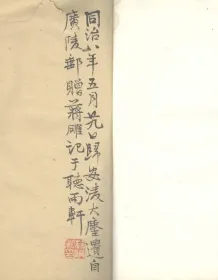 同治八年五月廿八日歸安淩大塵遺自
廣陵郵贈蔣確記于聽雨軒